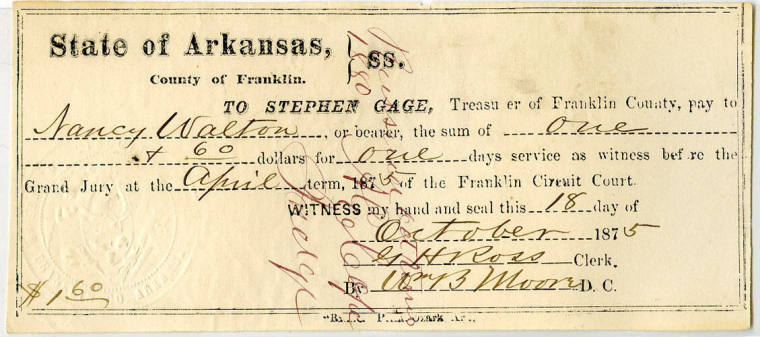 State of Arkansas, ss.
County of Franklin.
TO STEPHEN GAGE, Treasurer of Franklin County, pay to
Nancy Walton, or bearer, the sum of one
& 60 dollars for one days service as witness before the
Grand Jury at the April term, 1875 of the Franklin Circuit Court.
WITNESS my hand and seal this 18 day of
October 1875
G H Ross Clerk.
By Wm B Moore D. C.
$1 60
Ozark
1880
Judge